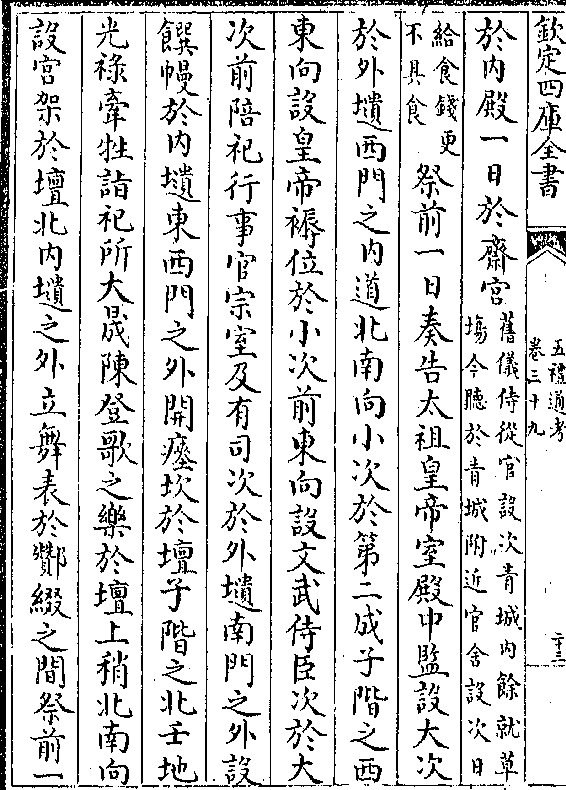 欽定四庫全書
五禮通考
卷三十九
二十三
於内殿一日於齋宫
舊儀侍從官設次青城内餘就草
塲今聽於青城附近官舍設次日
給食錢更
不具食
祭前一日奏告太祖皇帝室殿中監設大次
於外壝西門之内道北南向小次於第二成子階之西
東向設皇帝褥位於小次前東向設文武侍臣次於大
次前陪祀行事官宗室及有司次於外壝南門之外設
饌幔於内壝東西門之外開瘞坎於壇子階之北壬地
光禄牽牲詣祀所大晟陳登歌之樂於壇上稍北南向
設宫架於壇北内壝之外立舞表於酇綴之間祭前一